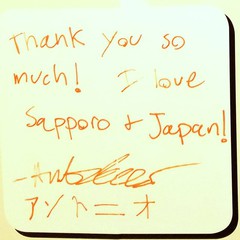 Thank you so
much! I love
Sapporo + Japan!
アントニオ